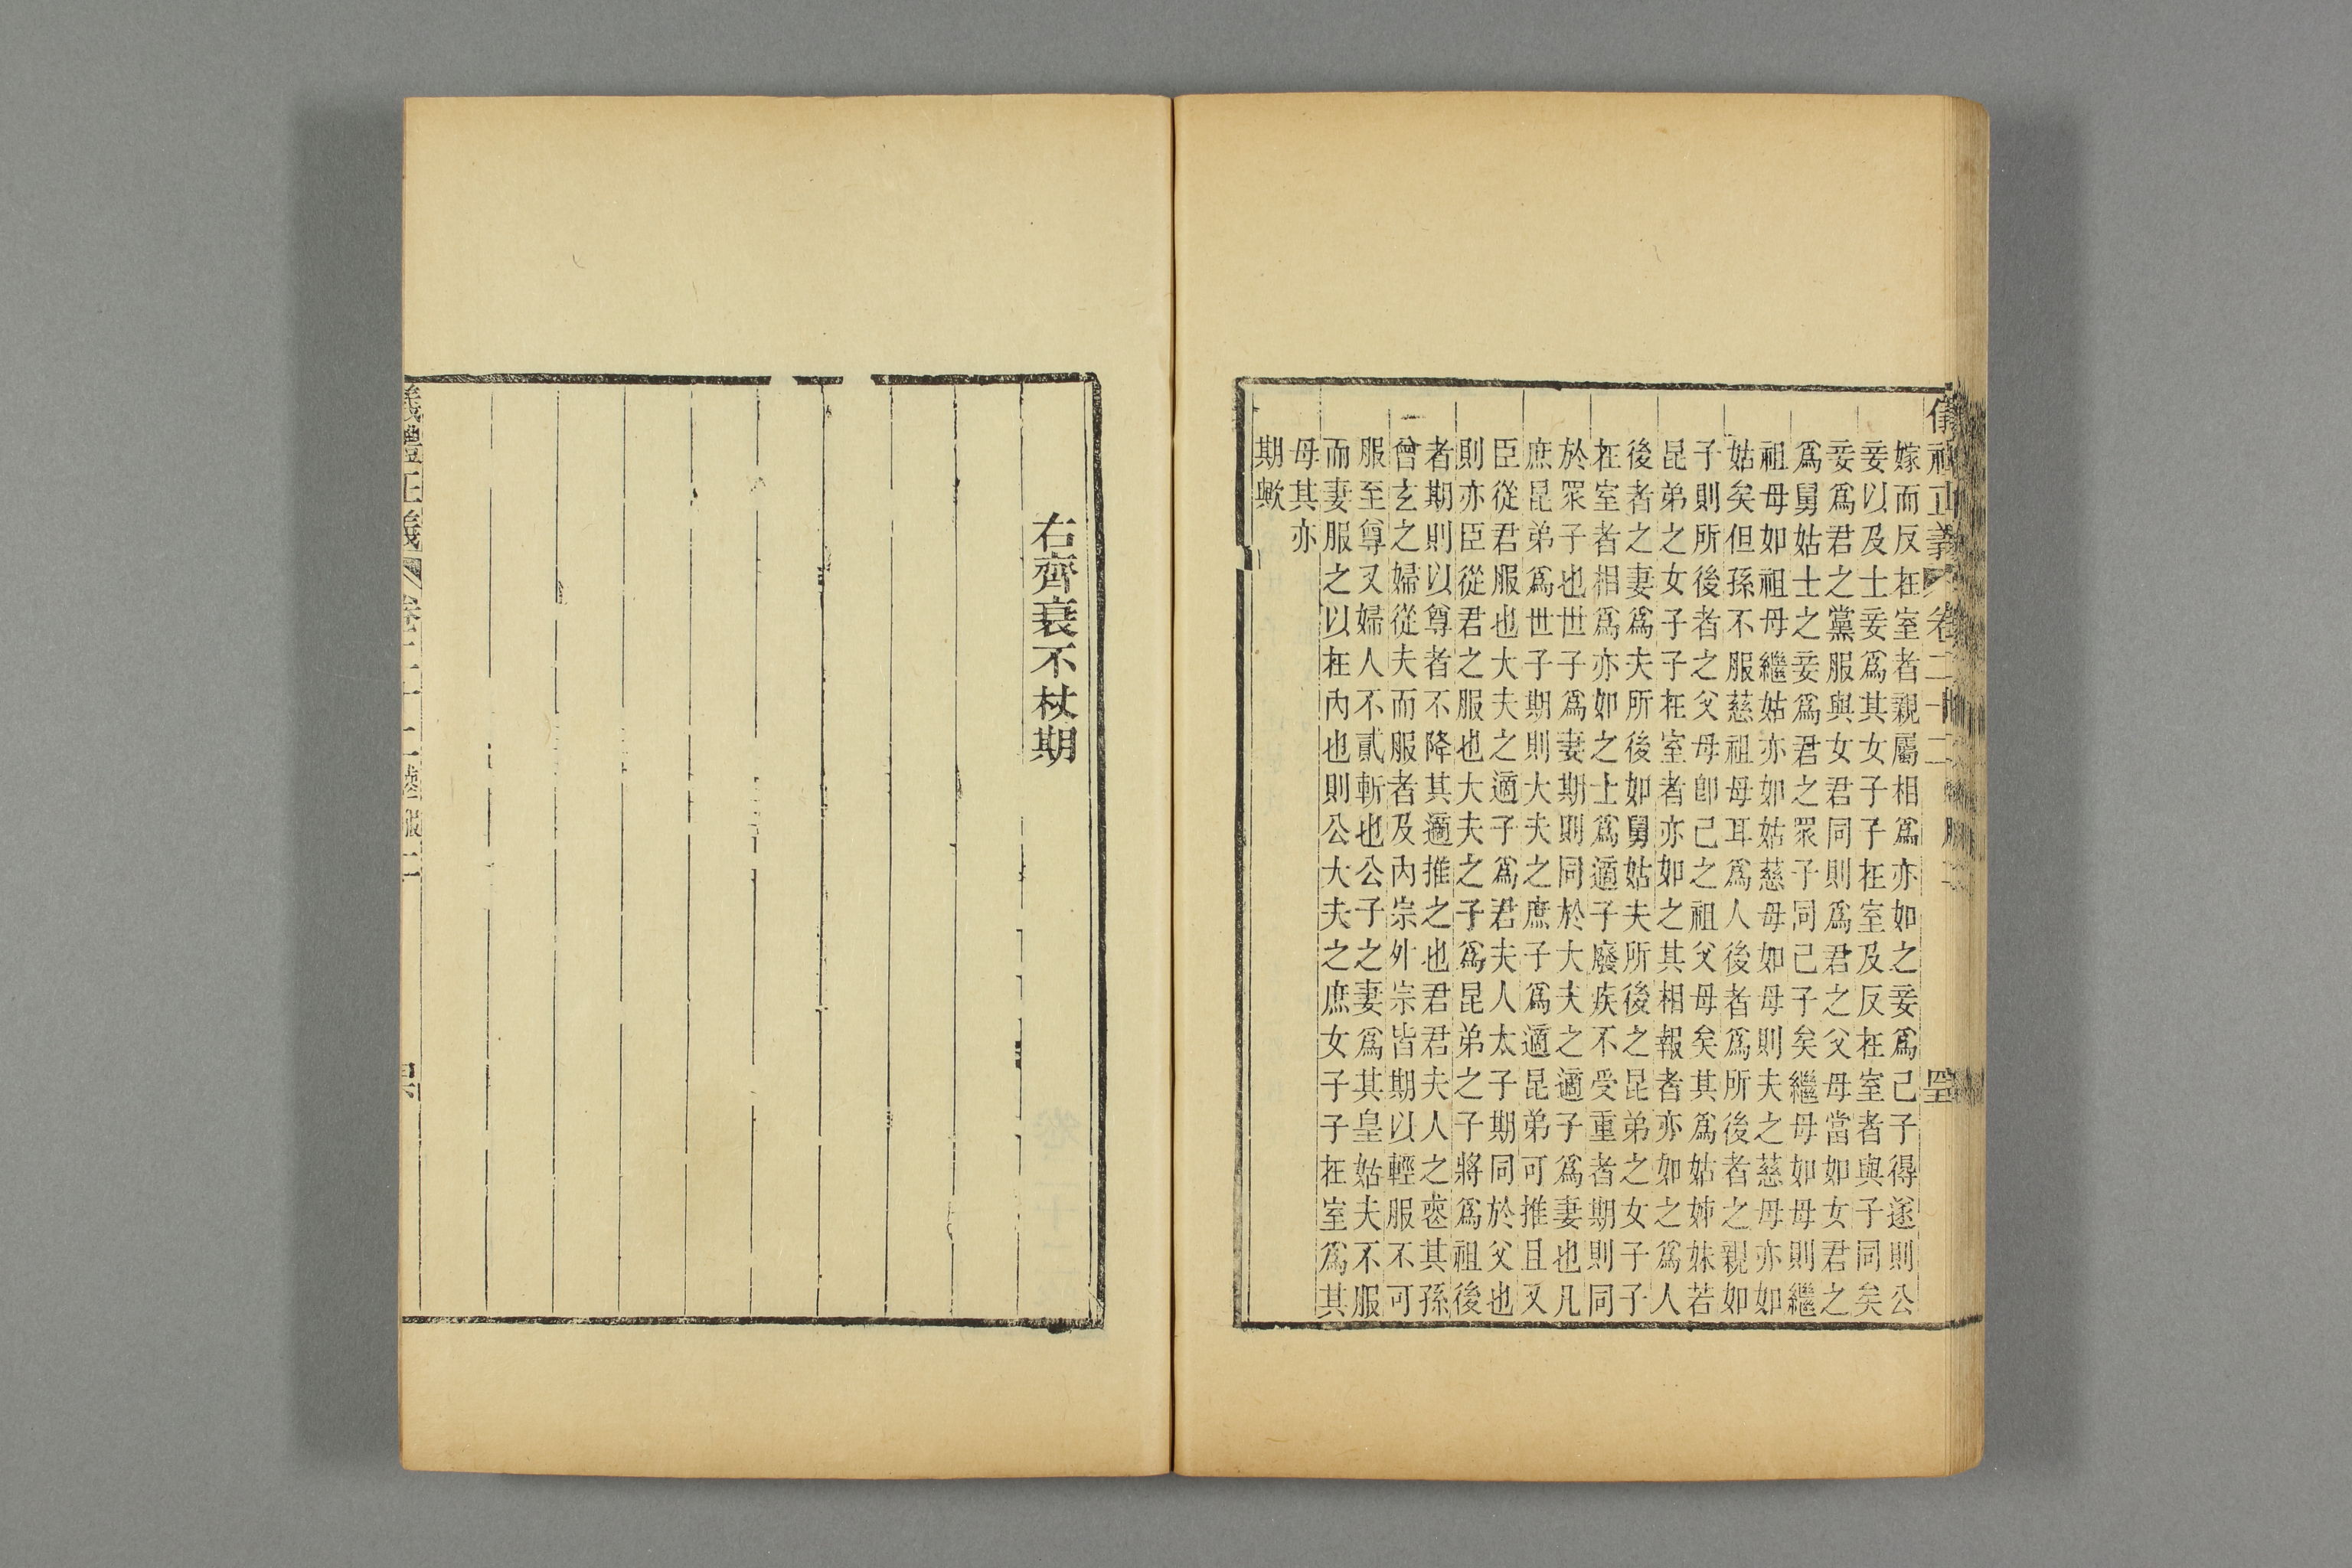 儀禮正義 卷二十二 喪服二 四五
嫁而反在室者親屬相爲亦如之妾爲己子得遂則公
妾以及士妾爲其女子子在室及反在室者與子同矣
妾爲君之黨服與女君同則爲君之父母當如女君之
爲舅姑士之妾爲君之眾子同己子矣繼母如母則繼
祖母如祖母繼姑亦如姑慈母如母則夫之慈母亦如
姑矣但孫不服慈祖母耳爲人後者爲所後者之親如
子則所後者之父母卽己之祖父母矣其爲姑姊妹若
昆弟之女子子在室者亦如之其相報者亦如之爲人
後者之妻爲夫所後如舅姑夫所後之昆弟之女子子
在室者相爲亦如之士爲適子廢疾不受重者期則同
於眾子也世子爲妻期則同於大夫之適子爲妻也凡
庶昆弟爲世子期則大夫之庶子爲適昆弟可推且又
臣從君服也大夫之適子爲君夫人太子期同於父也
則亦臣從君之服也大夫之子爲昆弟之子將爲祖後
者期則以尊者不降其適推之也君君夫人之喪其孫
曾玄之婦從夫而服者及內宗外宗皆期以輕服不可
服至尊又婦人不貳斬也公子之妻爲其皇姑夫不服
而妻服之以在內也則公大夫之庶女子子在室爲其
母其亦
期歟
右齊衰不杖期
儀禮正義 卷二十二 喪服二